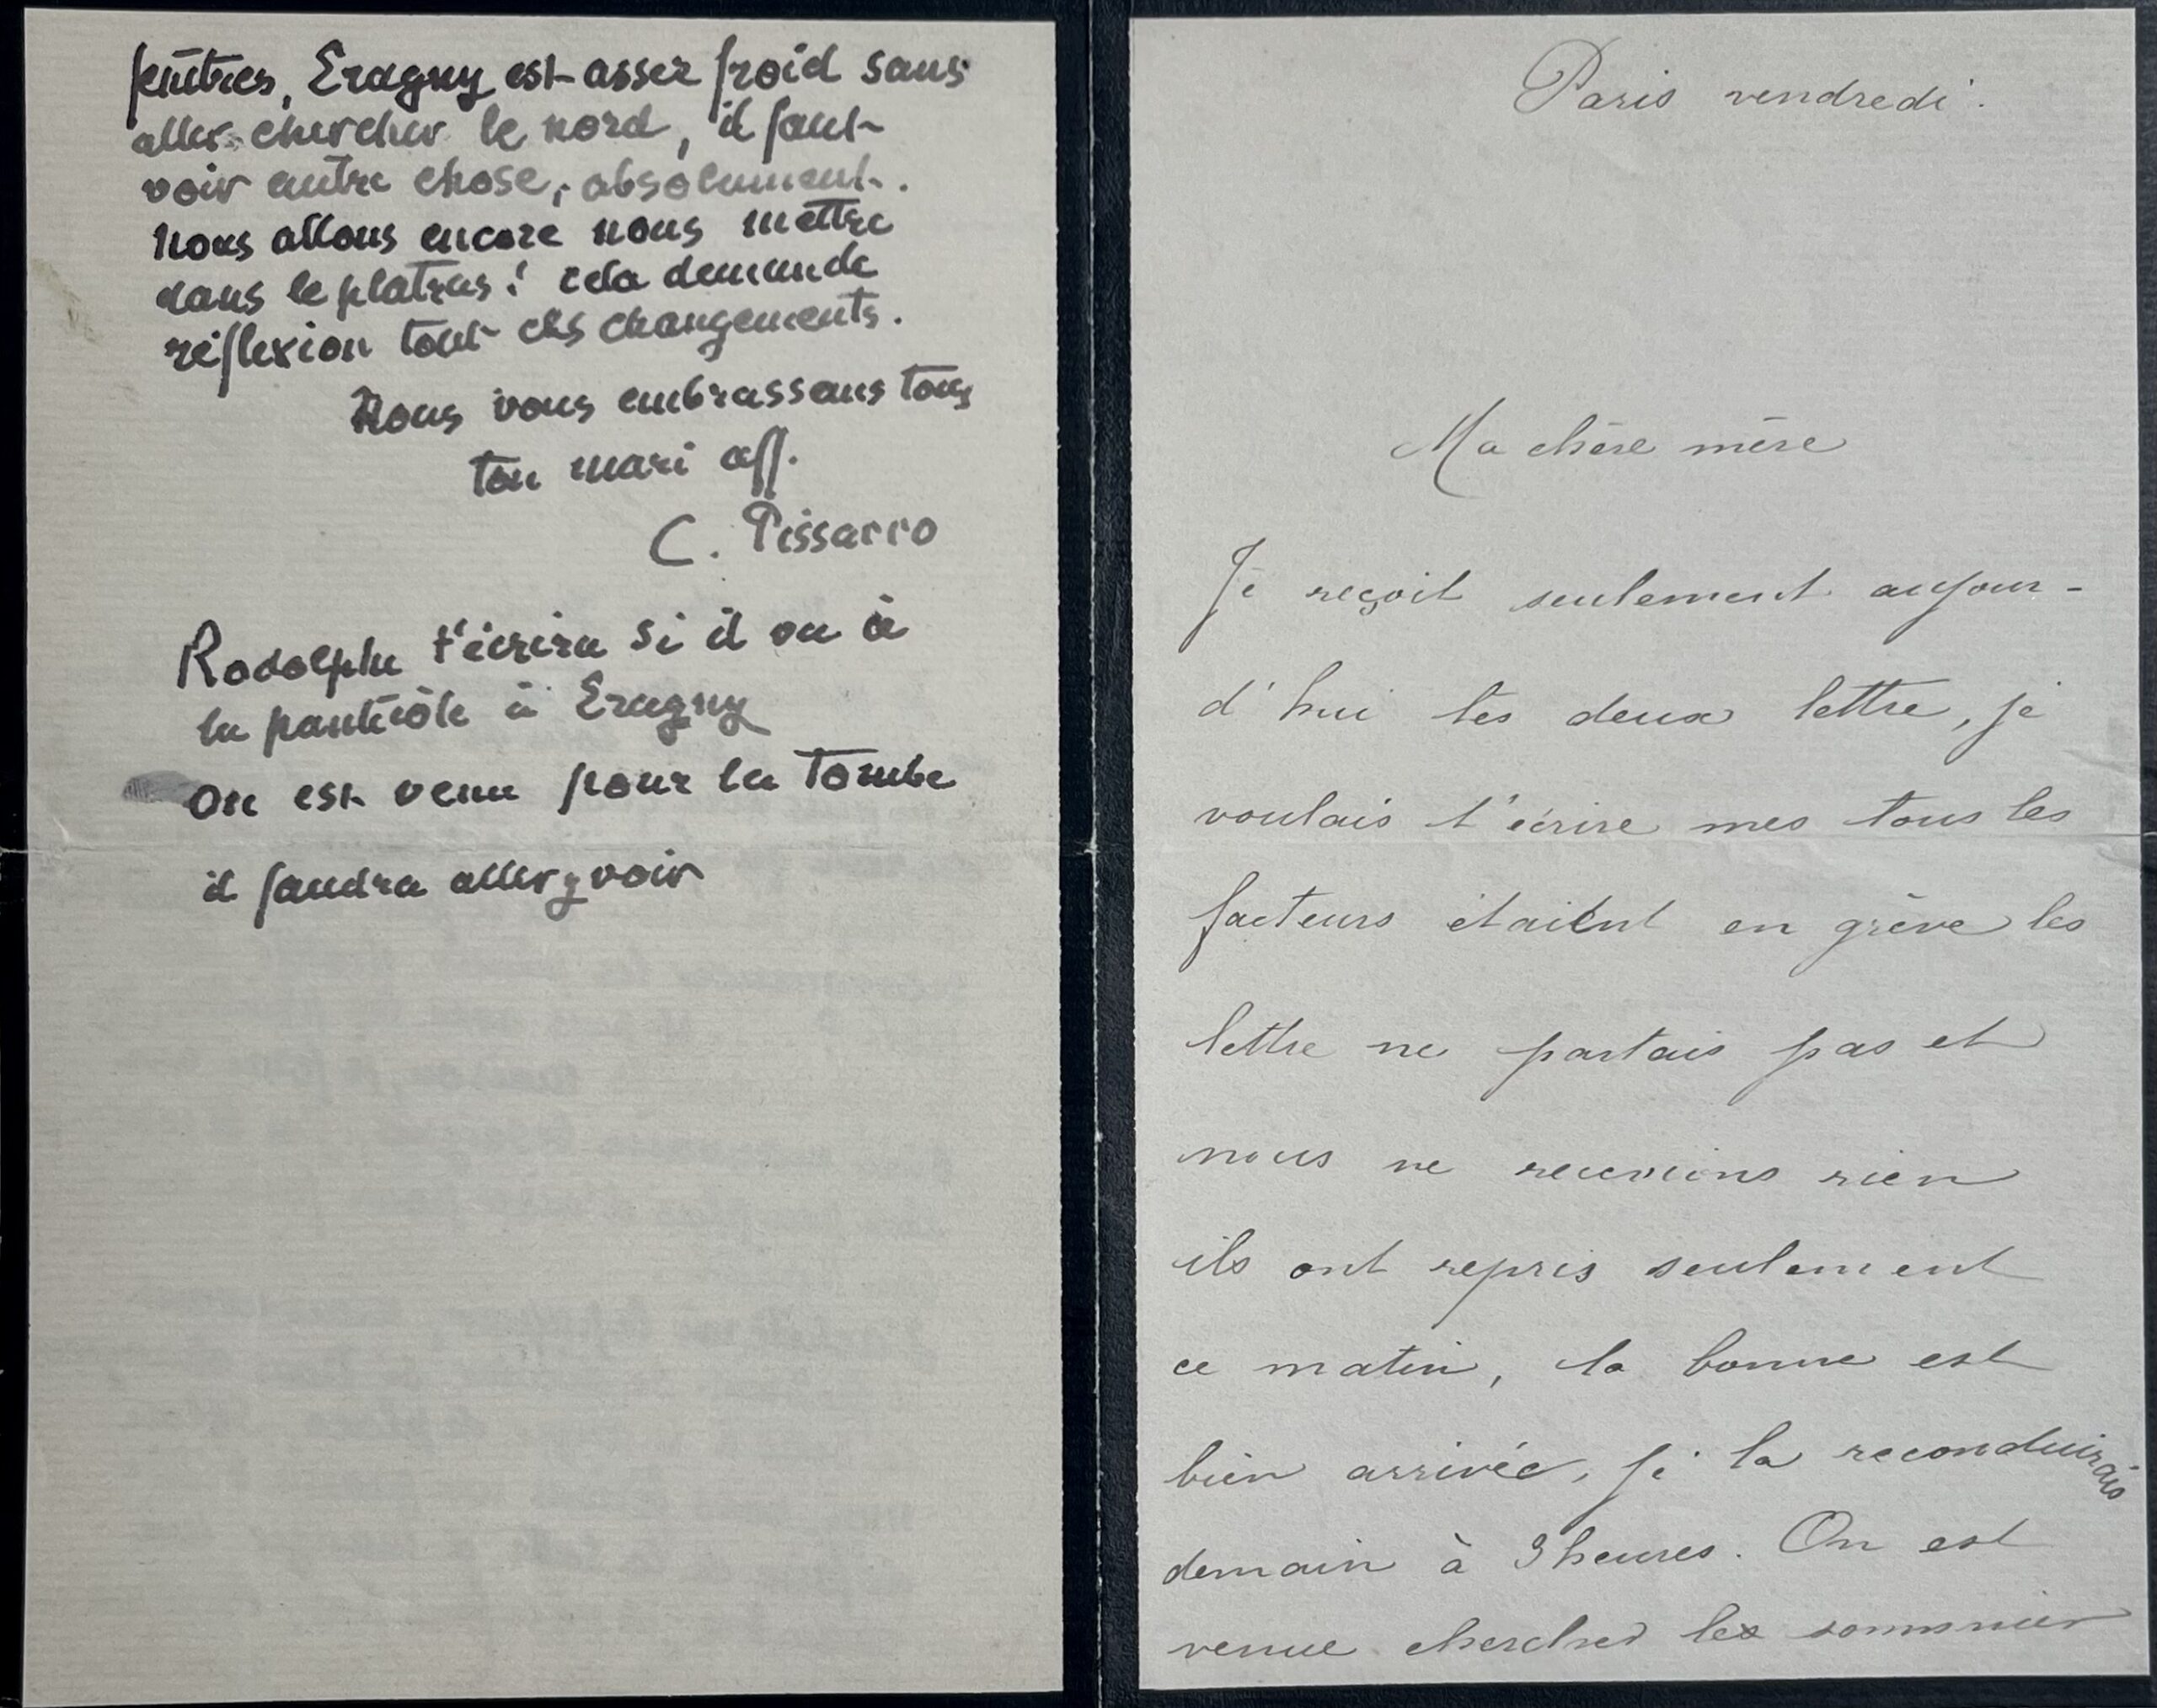 fenêtres, Eragny est assez froid sans
aller chercher le nord, il faut
voir autre chose, absolument.
Nous allons encore nous mettre
dans le platras! cela demande
réflexion tout ces changements.
Nous vous embrassons tous
ton mari aff.
C. Pissarro
Rodolphe t'écrira si il va à
la à Eragny
On est venu pour la Tombe
il faudra aller y voir
Paris vendredi.
Ma chère mère
Je reçoit seulement aujour-
d'hui tes deux lettre, je
voulais t'écrire mes tous les
facteurs étaient en grève les
lettre ne partais pas et
nous ne recevions rien
ils ont repris seulement
ce matin, la bonne est
bien arrivée, je la reconduirais
demain à 3 heures. On est
venue chercher les sommier